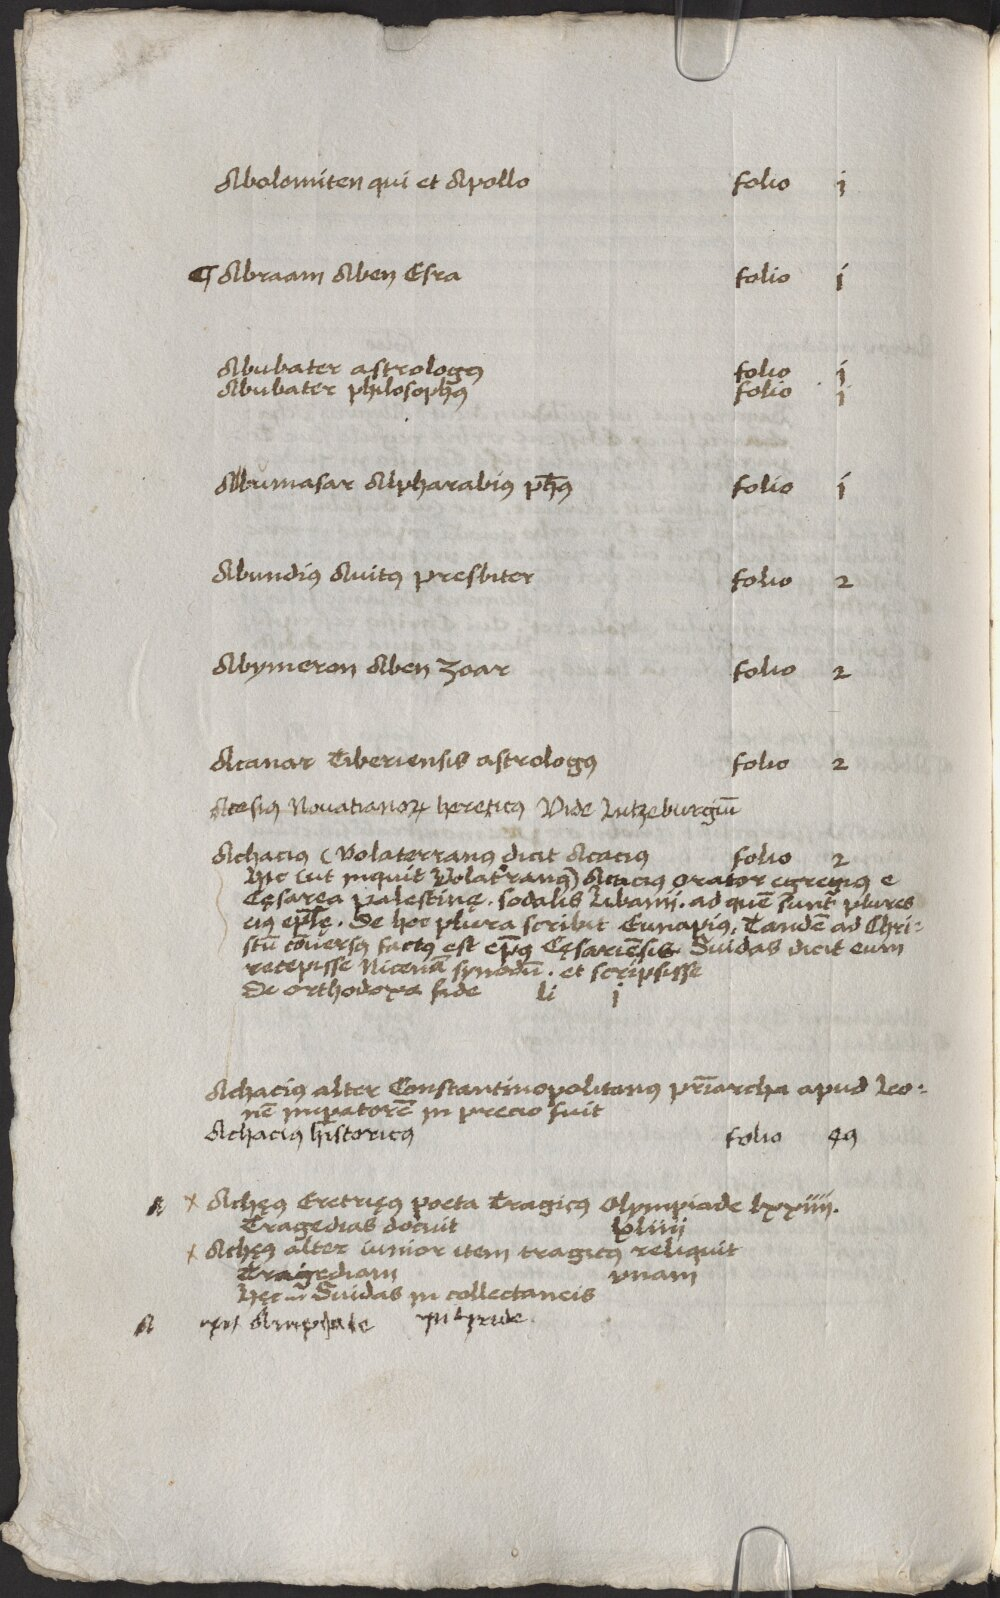 Abolomiten qui et Apollo folio j
Abraam Aben Esra folio j
Abubater astrologꝰ folio j
Abubater philosophꝰ folio j
Albumasar Alpharabiꝰ ph̄ꝰ folio j
Abundiꝰ Auitꝰ presbiter folio 2
Abymeron Aben Zoar folio 2
Acanar Tiberiensis astrologꝰ folio 2
Acesiꝰ Nouatianoꝝ heretícꝰ Vide Lutzeburgiū
Achaciꝰ (Volaterranꝰ dicit Acaciꝰ folio 2
hic (ut inquit Volat'ranꝰ) Acaciꝰ orator egregiꝰ e
Cęsarea palestinę. sodalis Libanii. ad quē sunt plures
eiꝰ ep̄lę. De hoc plura scribit Eunapiꝰ, Tandē ad Chri-
stū cōuersꝰ factꝰ est ep̄ꝰ Cęsariēsis. Suidas dicit eum
recepisse Nicenā synodū. et scripsisse
De orthodoxa fide li j
Achaciꝰ alter Constantinopolitanꝰ pr̄iarcha apud Leo-
nē imꝑatorē in precio fuit
Achaciꝰ historicꝰ folio 49
Achęꝰ Eretrięꝰ poeta Tragicꝰ Olympiade lxxiiii.
Tragedias docuit xliiii
Achęꝰ alter iunior item tragicꝰ reliquit
Tragediam vnam
Hęc Suidas in collectaneis